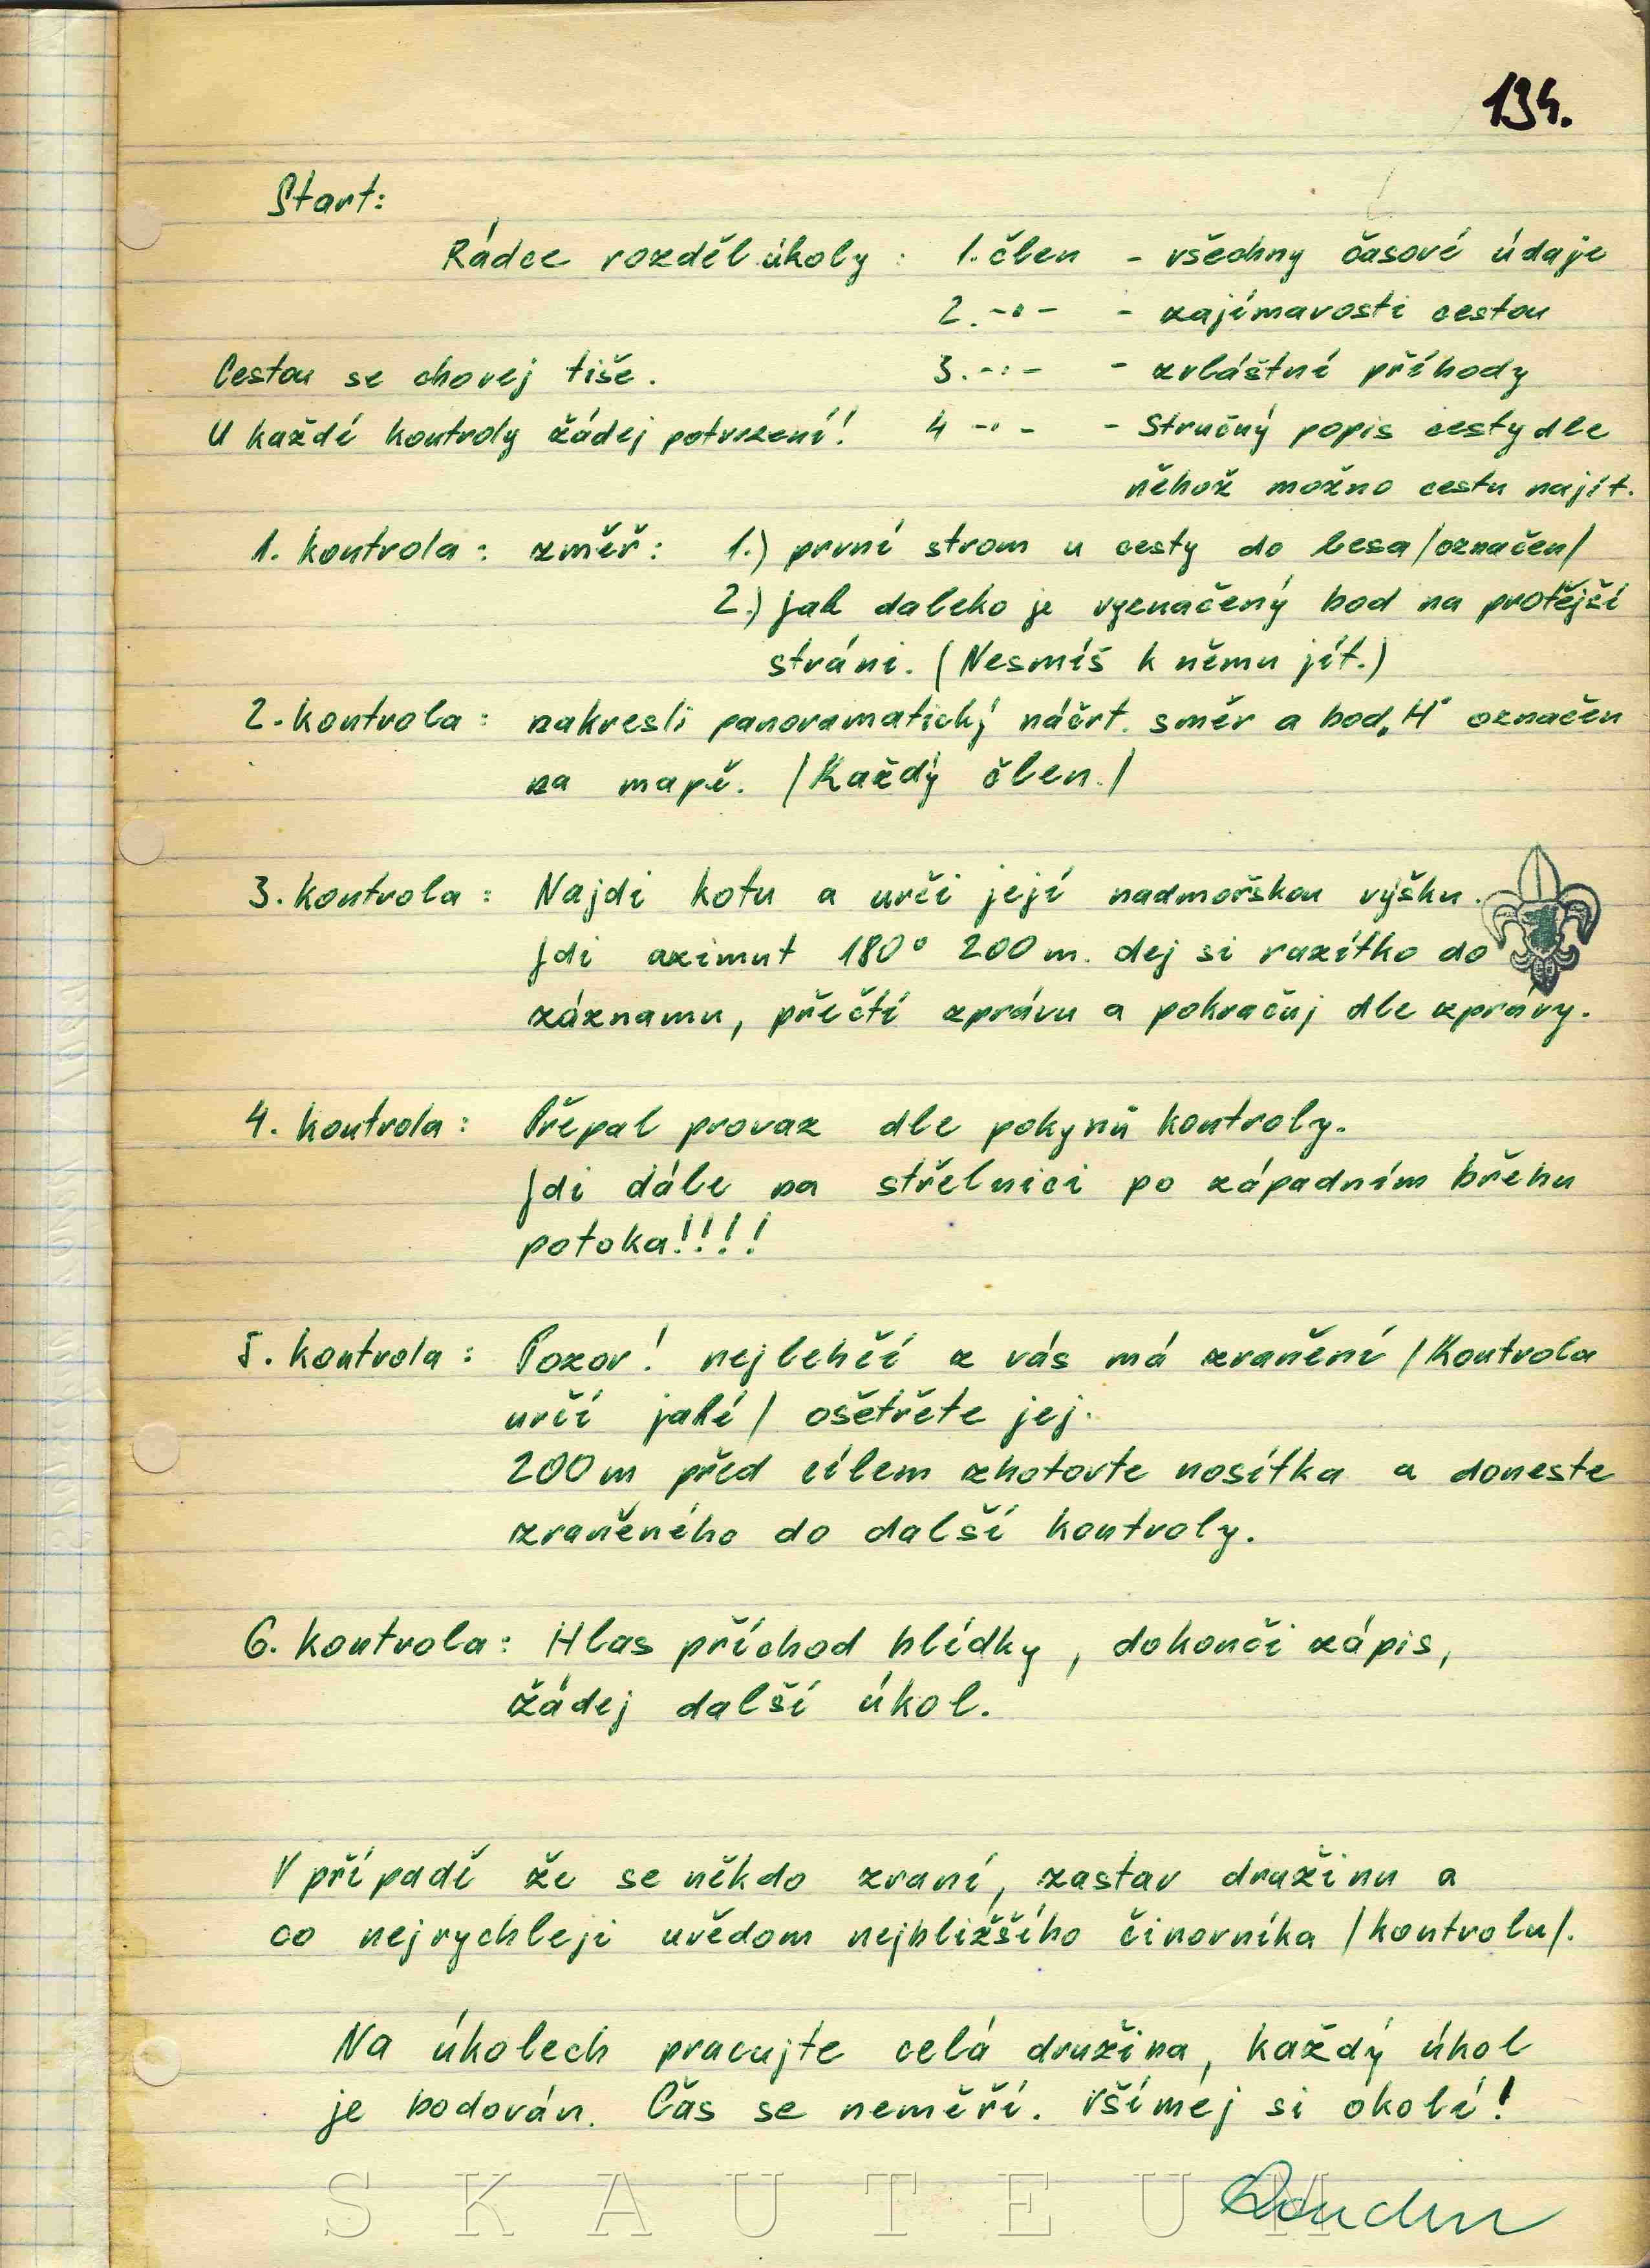 134.
Start:
Rádce rozděl úkoly : 1. člen - všechny časové údaje
2. -"- - zajímavosti cestou
Cestou se chovej tiše. 3. -"- - zvláštní příhody
U každé kontroly žádej potvrzení! 4 -"- - Stručný popis cesty dle
něhož možno cestu najít.
1. kontrola: změř: 1.) první strom u cesty do lesa /označen/
2.) Jak daleko je vyznačený bod na protější
stráni. (Nesmíš k němu jít.)
2. kontrola: nakresli panoramatický náčrt. směr a bod „H" označen
na mapě. /Každý člen./
3. kontrola: Najdi kotu a urči její nadmořskou výšku.
Jdi azimut 180° 200 m. dej si razítko do
záznamu, přečti zprávu a pokračuj dle zprávy.
4. kontrola: Přepal provaz dle pokynů kontroly.
Jdi dále na střelnici po západním břehu
potoka!!!!
5. kontrola: Pozor! nejlehčí z vás má zranění /Kontrola
určí jaké/ ošetřete jej.
200 m před cílem zhotovte nosítka a doneste
zraněného do další kontroly.
6. kontrola: Hlas příchod hlídky, dokonči zápis,
žádej další úkol.
V případě že se někdo zraní, zastav družinu a
co nejrychleji uvědom nejbližšího činovníka /kontrolu/.
Na úkolech pracujte celá družina, každý úkol
je bodován. Čas se neměří. Všímej si okolí!
SKAUTEUM